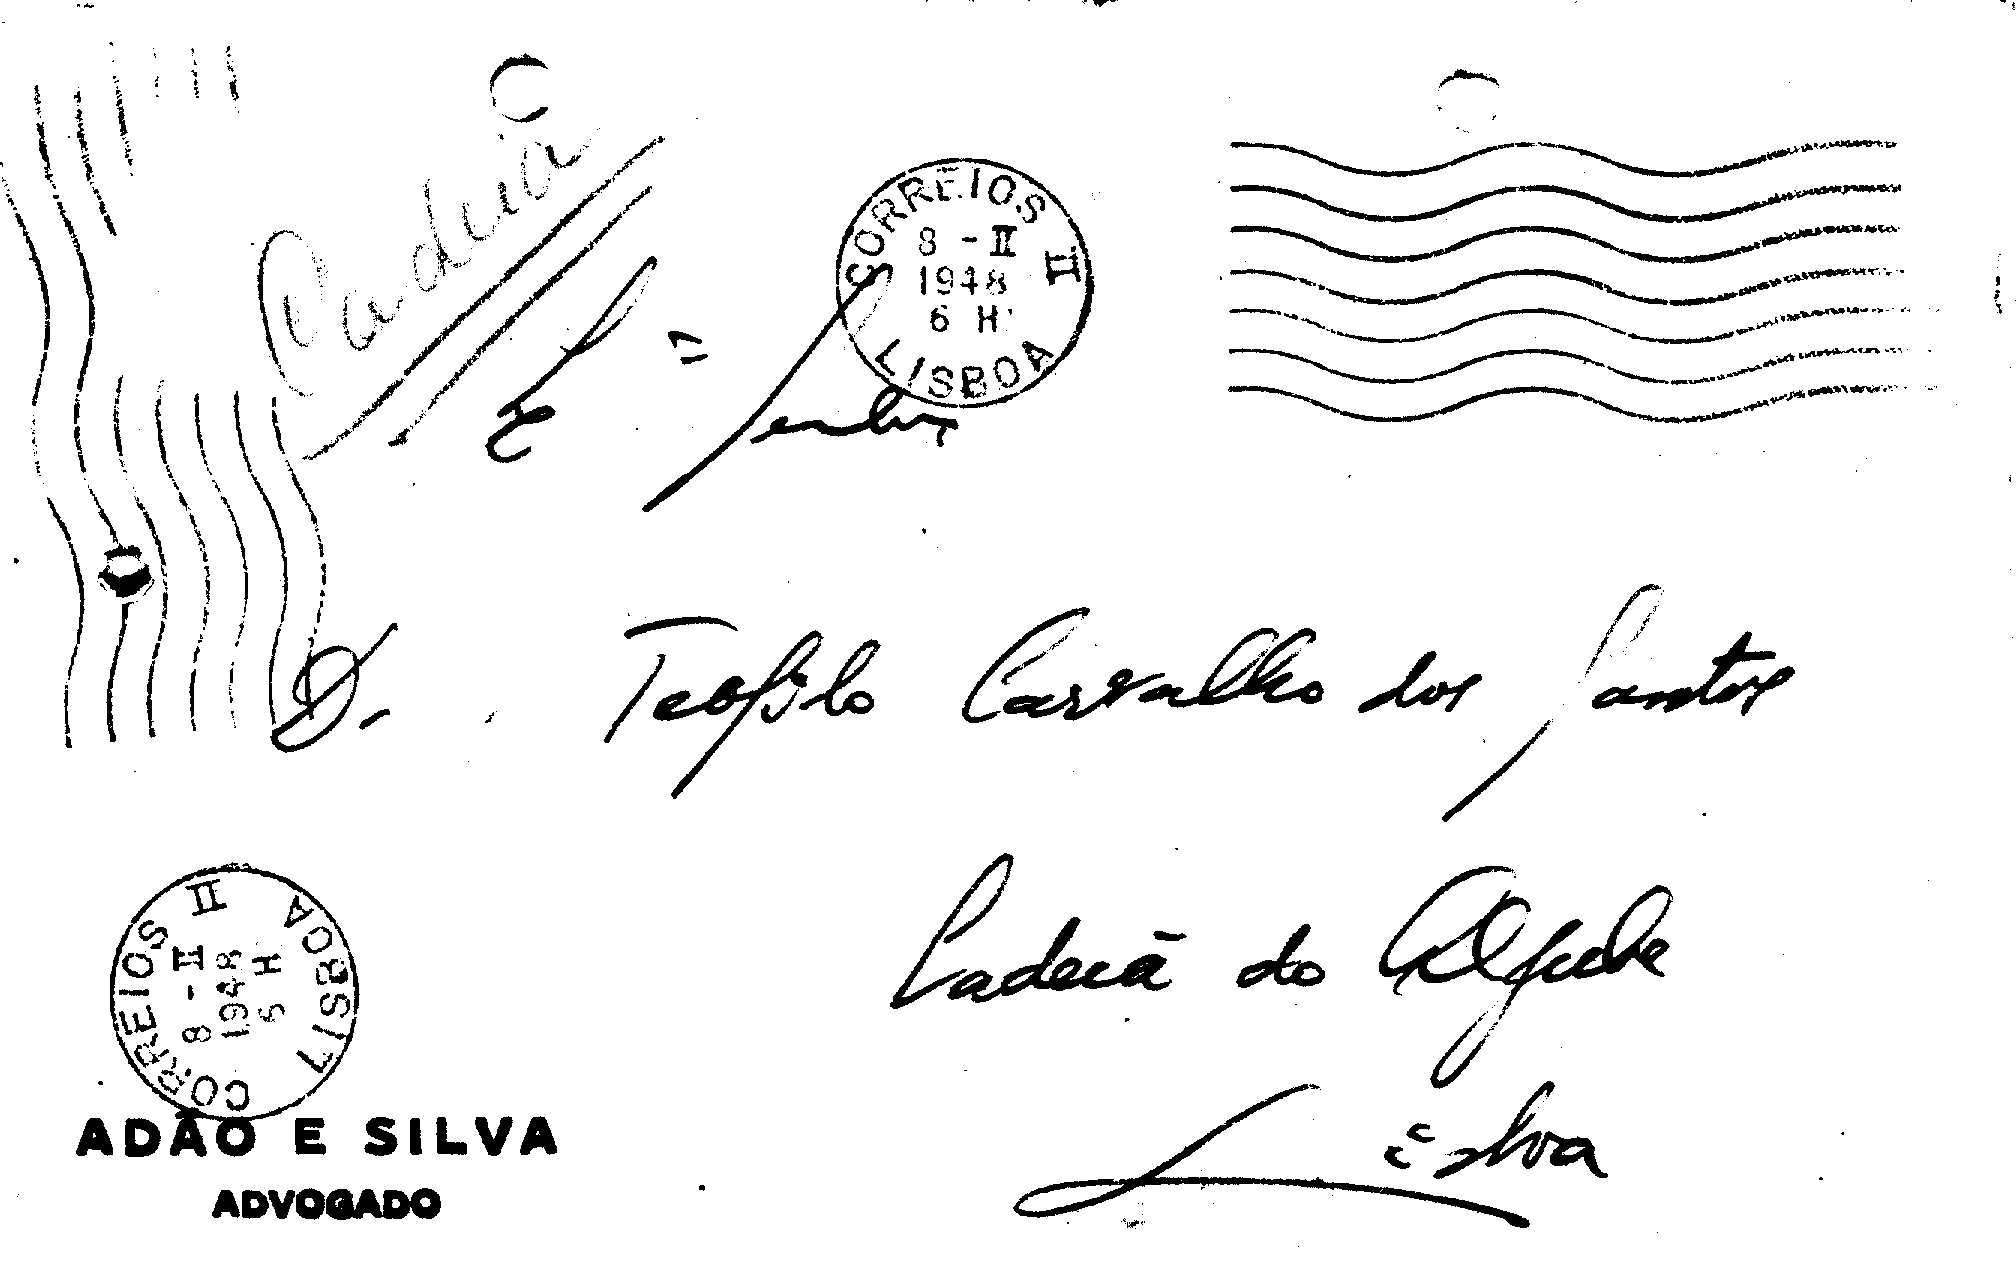 Cadeia
Ex.mo Senhor
CORREIOS II
8 - II
1948
6 H
LISBOA
Dr. Teófilo Carvalho dos Santos
Cadeia do Aljube
Lisboa
CORREIOS II
8 - II
1948
5 H
LISBOA
ADÃO E SILVA
ADVOGADO